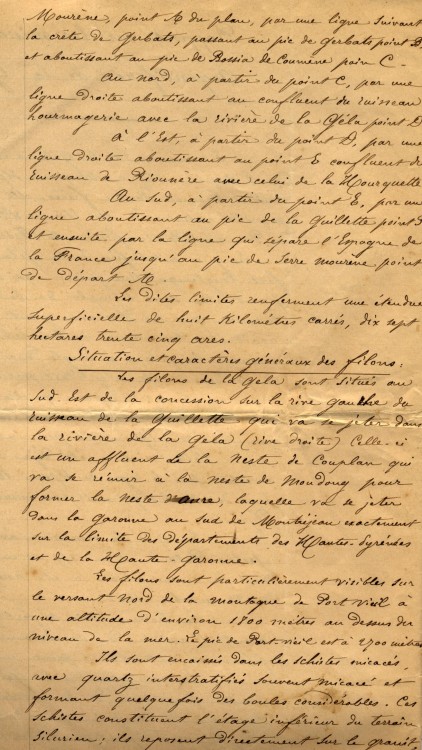 Mourène, point A du plan, par une ligne suivant
la crête de Gerbats, passant au pic de Gerbats point B
et aboutissant au pic de Bassia de Coumène poin C -
Au nord, à partir du point C, par une
ligne droite aboutissant au confluent du ruisseau
hourmagerie avec la rivière de la Géla point D
À l'Est, à partir du point D, par une
ligne droite aboutissant au point E confluent du
ruisseau de Rioumère avec celui de la Hourquette
Au Sud, à partir du point E, par une
ligne aboutissant au pic de la Guillette point
et ensuite par la ligne qui sépare l'Espagne de
la France jusqu'au pic de Serre mourène point
de départ A.
Les dites limites renferment une étendue
superficielle de huit Kilomètres carrés, dix sept
hectares trente cinq ares.
Situation et caractères généraux des filons:
Les filons de la Gela sont situés au
Sud Est de la concession sur la rive gauche du
ruisseau de la Guillette qui va se jeter dans
la rivière de la Gela (rive droite) Celle-ci
est un affluent de la Neste de Couplan qui
va se réunir à la Neste de Moudong pour
former la Neste d'aure, laquelle va se jeter
dans la Garonne au Sud de Montrejeau exactement
sur la limite des départements des Hautes-Pyrénées
et de la Haute-Garonne.
Les filons sont particulièrement visibles sur
le versant Nord de la montagne de Port Vieil à
une altitude d'environ 1800 mètres au dessus du
niveau de la mer. Le pic de Port-vieil est à 2700 mètres
Ils sont encaissés dans les schistes micacés
avec quartz interstratifiés souvent micacé et
formant quelquefois des boules considérables. Ces
schistes constituent l'étage inférieur du terrain
Silurien; ils reposent directement sur le granit,